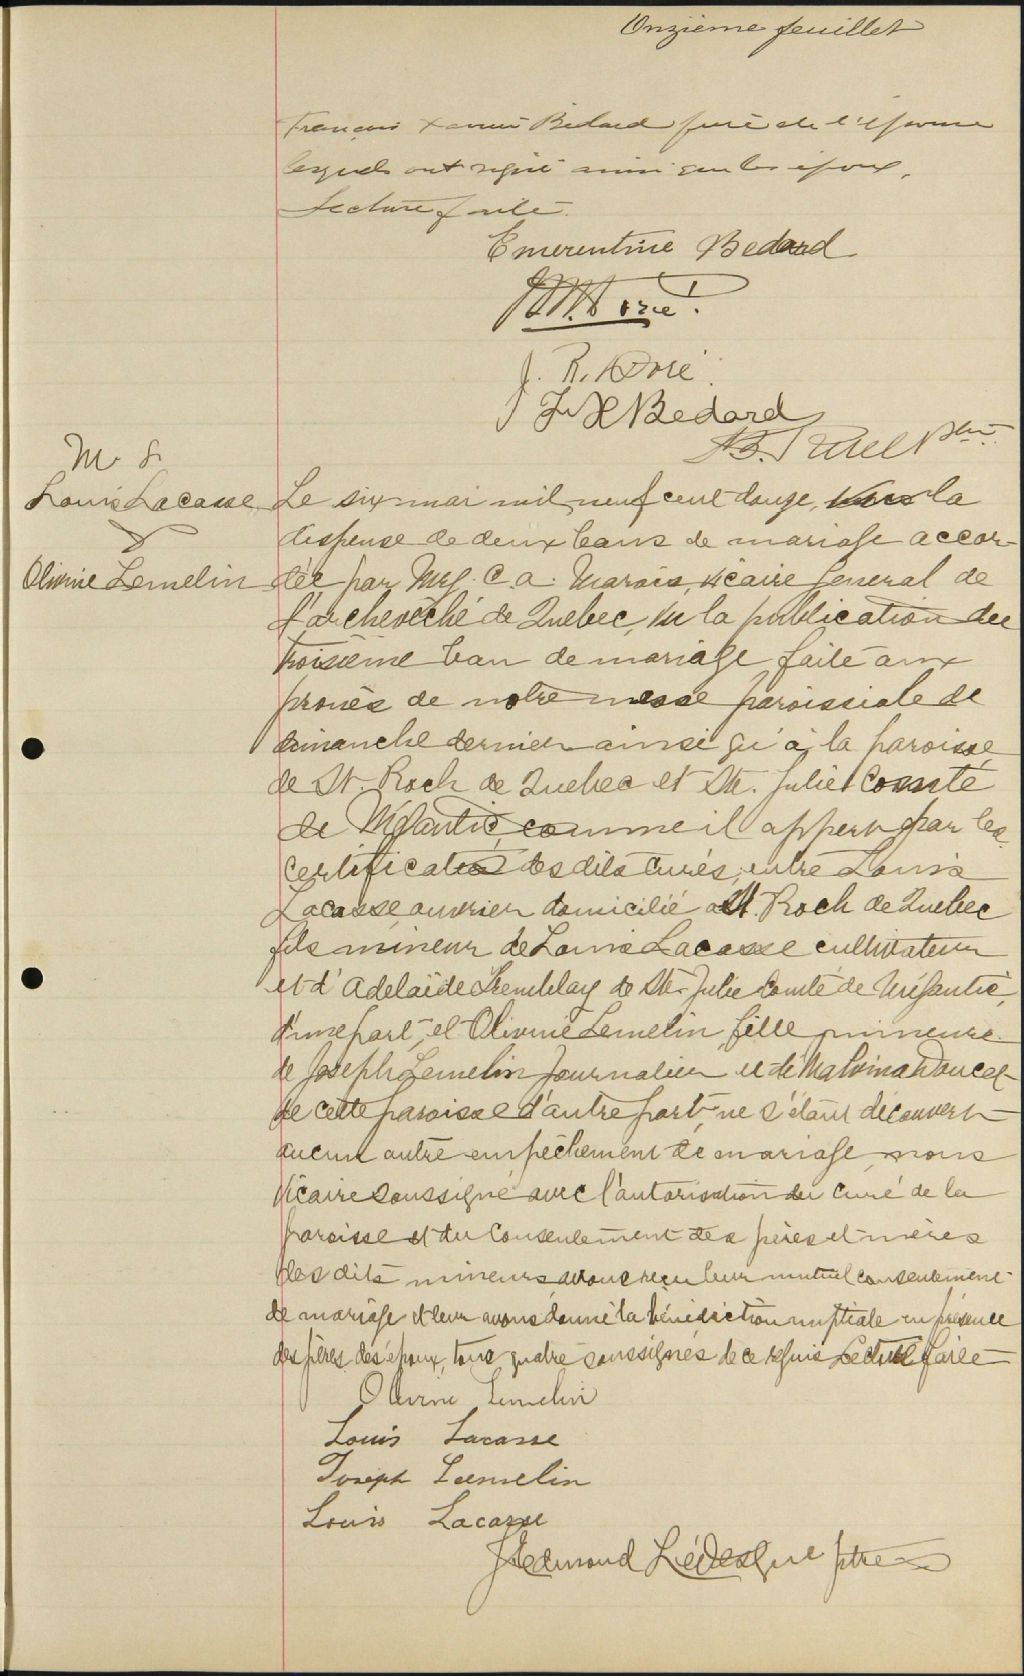 Onzième feuillet
François Xavier Bédard père de l'épouse
lesquels ont signé ainsi que les époux.
Lecture faite.
Emerentine Bedard
J. R. Doré
F X Bedard
M. 8.
Louis Lacasse
&
Olivine Lemelin
Le six mai mil neuf cent douze, vu la
dispense de deux bans de mariage accor-
dée par Mgr. C. A. Marois, vicaire general de
l'archevêché de Quebec, vu la publication du
troisième ban de mariage faite aux
prones de notre messe paroissiale de
dimanche dernier ainsi qu'à la paroisse
de St. Roch de Quebec et Ste. Julie Comté
de Mégantic, comme il appert par les
certificats des dits curés, entre Louis
Lacasse, ouvrier domicilié à St. Roch de Quebec
fils mineur de Louis Lacasse cultivateur
et d'Adelaïde Tremblay de Ste-Julie Comté de Mégantic,
d'une part, et Olivine Lemelin, fille mineure
de Joseph Lemelin Journalier et de Malvina Doucet
de cette paroisse d'autre part, ne s'étant découvert
aucun autre empêchement de mariage, nous
Vicaire soussigné avec l'autorisation du curé de la
paroisse et du consentement des pères et mères
des dits mineurs avons reçu leur mutuel consentement
de mariage et leur avons donné la bénédiction nuptiale en présence
des pères des époux, tous quatre soussignés de ce requis Lecture faite
Olivine Lemelin
Louis Lacasse
Joseph Lemelin
Louis Lacasse
Edmond Lévesque ptre